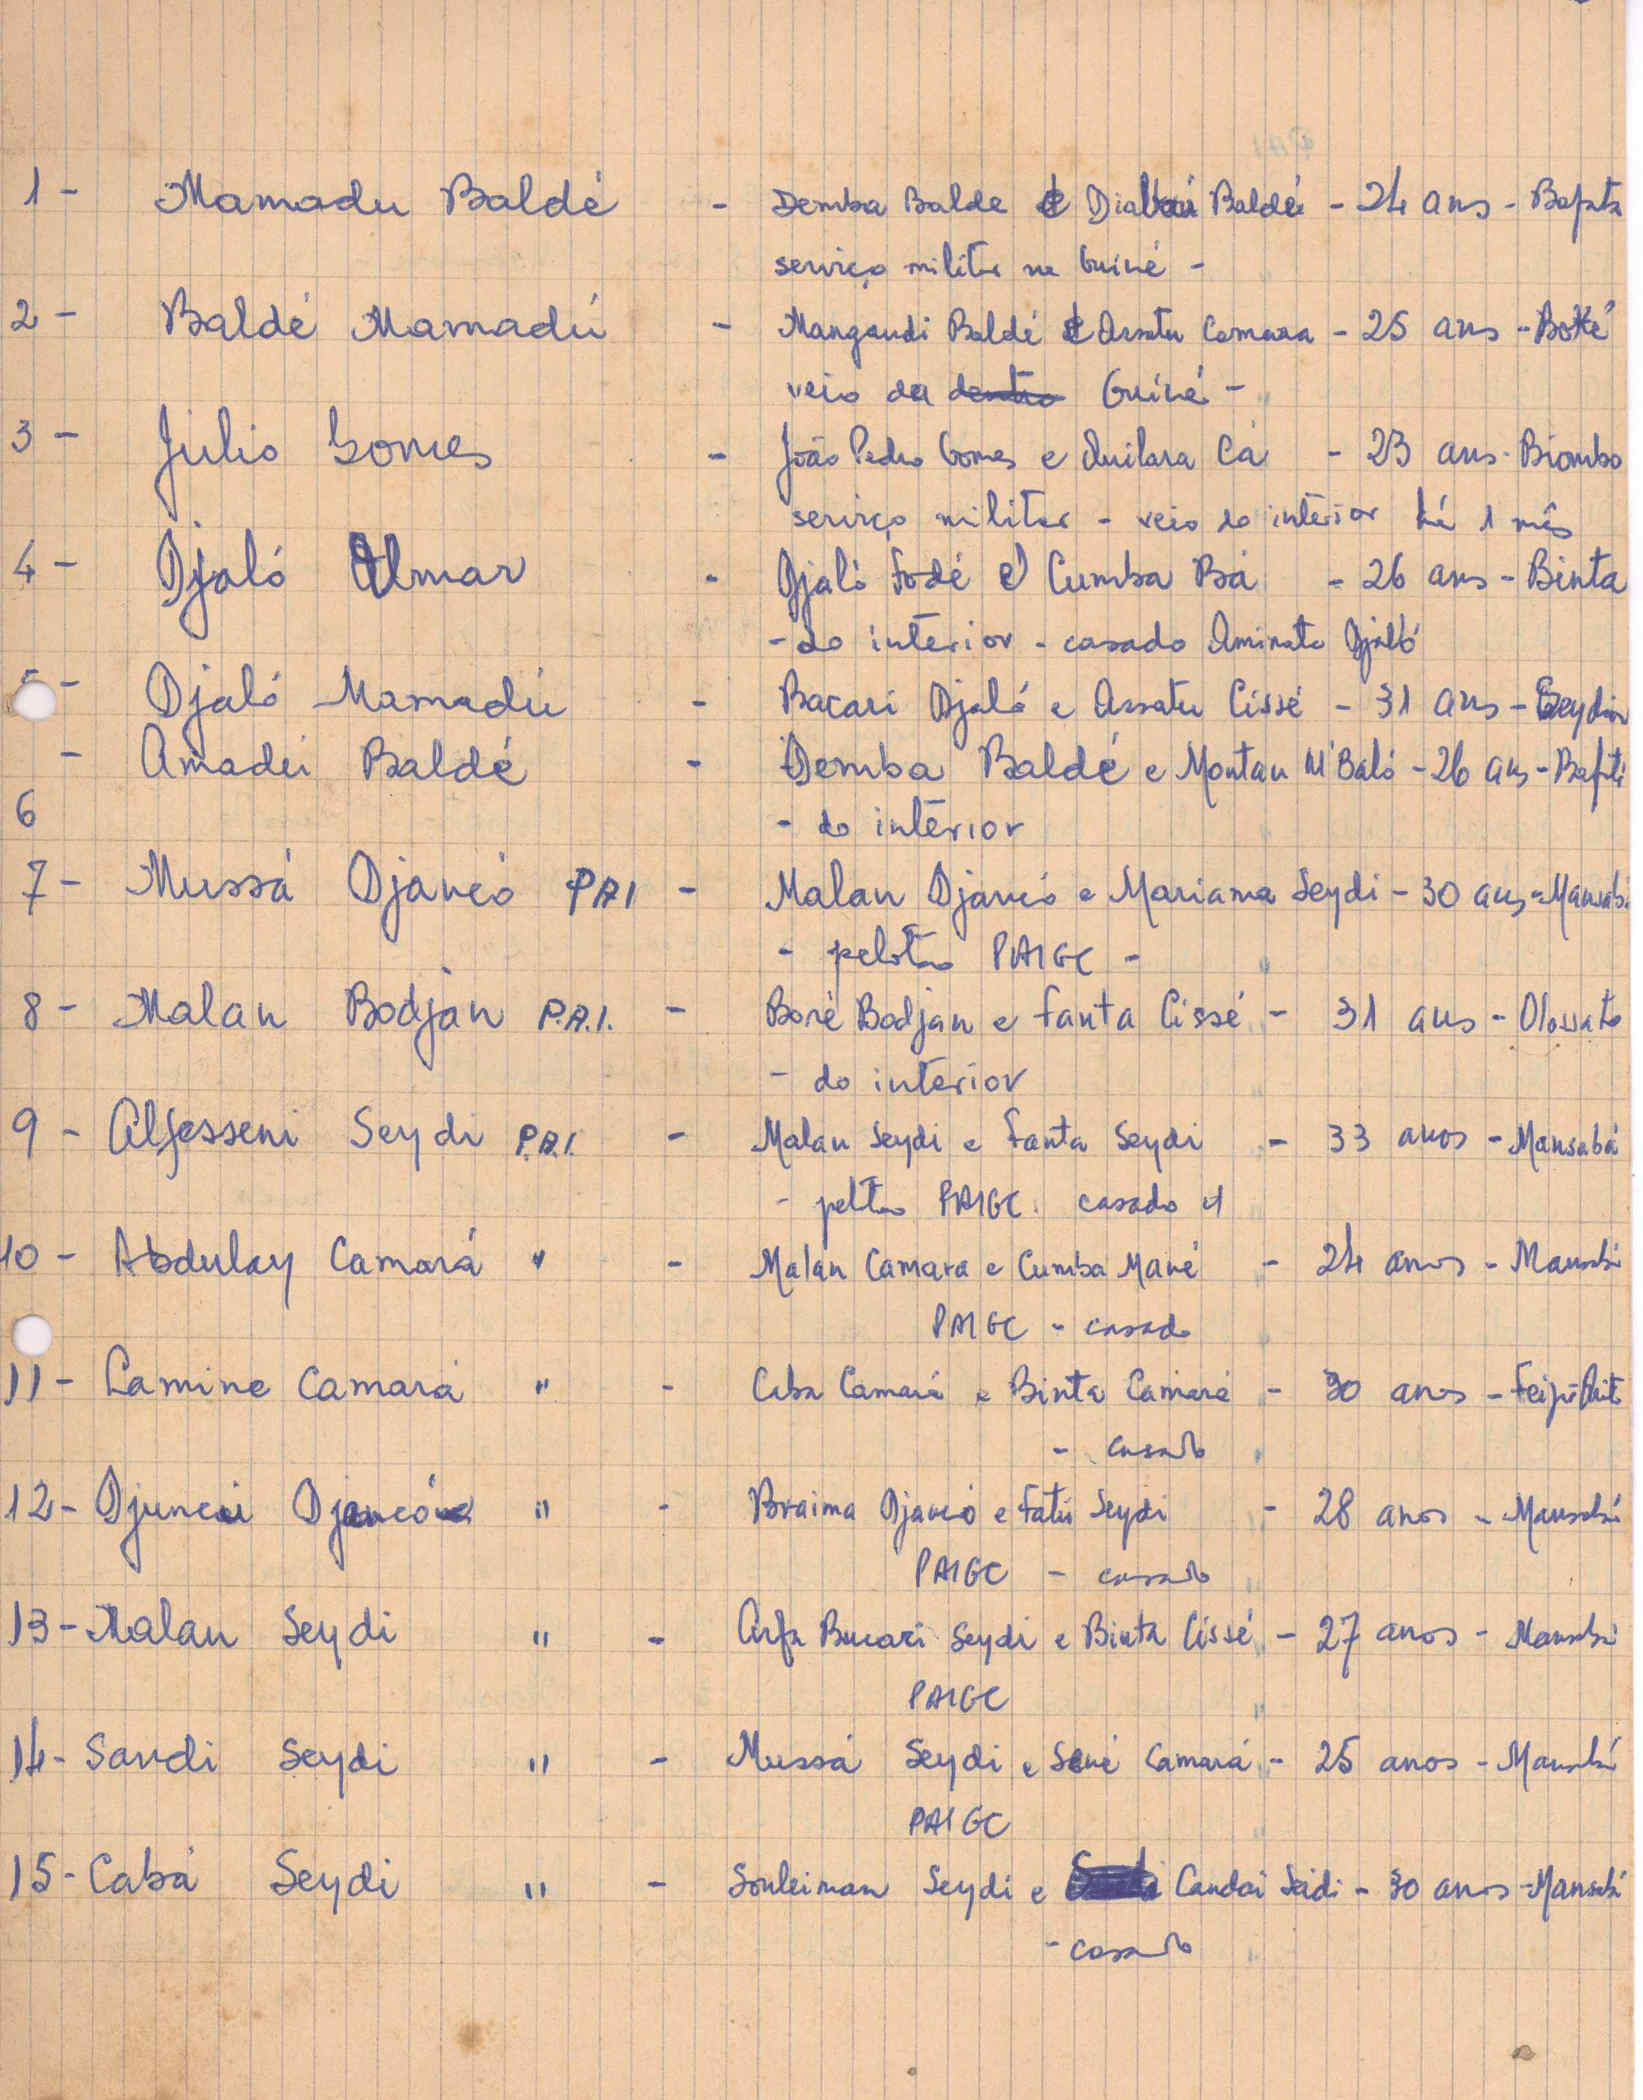 1 - Mamadu Baldé - Demba Balde e Baldé - 24 ans - Bafata
serviço militar na Guiné -
2 - Baldé Mamadú - Mangaudi Baldé e Assatu Camara - 25 ans - Boké
veio da dentro Guiné -
3 - Júlio Gomes - João Pedro Gomes e Quilara Cá - 23 ans - Biombo
serviço militar - veio do interior há 1 mês
4 - Djaló Umar - Djaló Fodé e Cumba Bá - 26 ans - Binta
- do interior - casado Aminata Djaló
5 - Djaló Mamadú - Bacari Djaló e Assatu Cissé - 31 ans -
- Amadú Baldé - Demba Baldé e Montau M'Baló - 26 ans - Bafatá
6 - do interior
7 - Mussá Djancó PAI - Malan Djancó e Mariama Seydi - 30 ans - Mansabá
- pelotão PAIGC -
8 - Malan Bodjan P.A.I. - Boré Bodjan e Fanta Cissé - 31 ans - Olossato
- do interior
9 - Alfesseni Seydi P.A.I. - Malan Seydi e Fanta Seydi - 33 anos - Mansabá
- peltão PAIGC. casado
10 - Abdulay Camará " - Malan Camara e Cumba Mané - 24 anos - Mansabá
PAIGC - casado
11 - Lamine Camará " - Caba Camará e Binta Camará - 30 anos -
- casado
12 - Djuncú Djancó " - Braima Djancó e Fatú Seydi - 28 anos - Mansabá
PAIGC - casado
13 - Malan Seydi " - Arfa Bucari Seydi e Binta Cissé - 27 anos - Mansabá
PAIGC
14 - Sandi Seydi " - Mussá Seydi e Sené Camará - 25 anos - Mansabá
PAIGC
15 - Cabá Seydi " - Souleiman Seydi e Candai Seidi - 30 anos - Mansabá
- casado